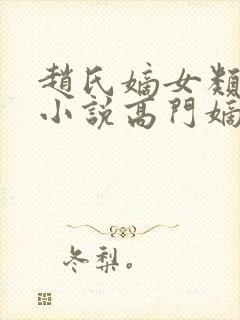 趙氏嫡女類
小說高門嫡
冬梨。